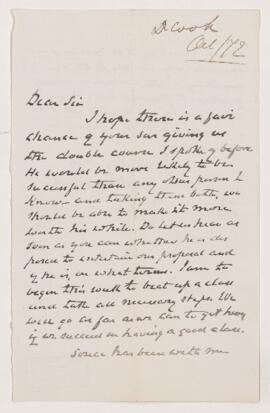 Dr Cook
Oct /72
Dear Sir
I hope there is a fair
chance of your son giving us
the double course I spoke of before
He would be more likely to be
successful than any other person I
know and taking them both, we
should be able to make it more
worth his while. Do let us hear as
soon as you can whether he is dis
posed to entertain our proposal and
if he is, on what terms. I am to
begin this week to beat up a class
and take all necessary steps. We
will go as far as we can to get
if we succeed in having a good class.
has been with me